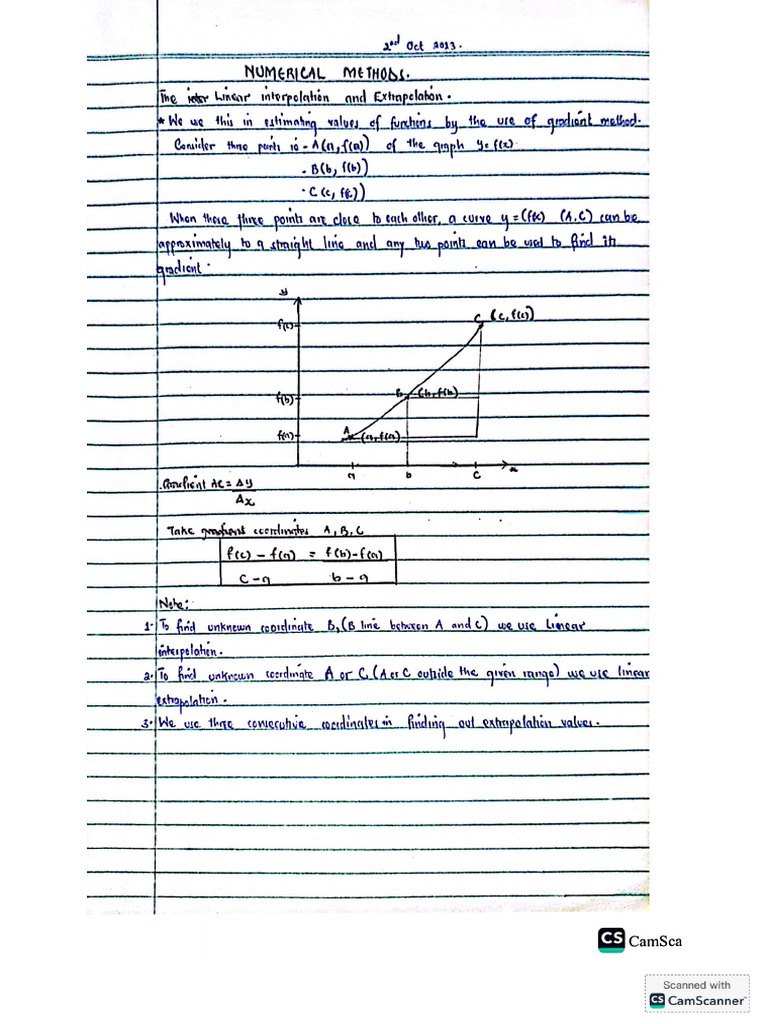 2nd Oct 2023.
NUMERICAL METHODS.
The Linear interpolation and Extrapolation.
* We use this in estimating values of functions by the use of gradient method.
Consider three points ie - A(a, f(a)) of the graph y = f(x).
- B(b, f(b))
- C(c, f(c))
When these three points are close to each other, a curve y = (f(x) (A, C) can be
approximately to a straight line and any two points can be used to find its
gradient.
y
C (c, f(c))
f(c)
B (b, f(b))
f(b)
A
f(a) (a, f(a))
a b c x
Gradient AC = Δy
Δx
Take coordinates A, B, C
f(c) - f(a) = f(b) - f(a)
c - a b - a
Note:
1. To find unknown coordinate B, (B line between A and C) we use linear
interpolation.
2. To find unknown coordinate A or C, (A or C outside the given range) we use linear
extrapolation.
3. We use three consecutive coordinates in finding out extrapolation values.
CS CamSca
Scanned with
CS CamScanner